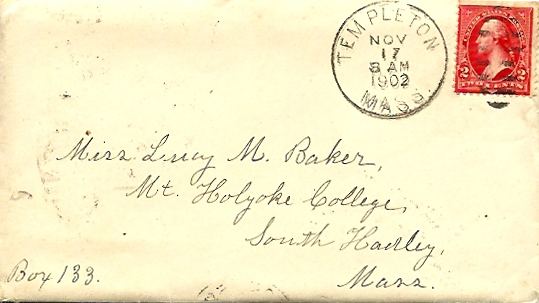 TEMPLETON
NOV
17
8 AM
1902
MASS.
2 2
Miss Lucy M. Baker,
Mt. Holyoke College,
South Hadley,
Mass.
Box 133.